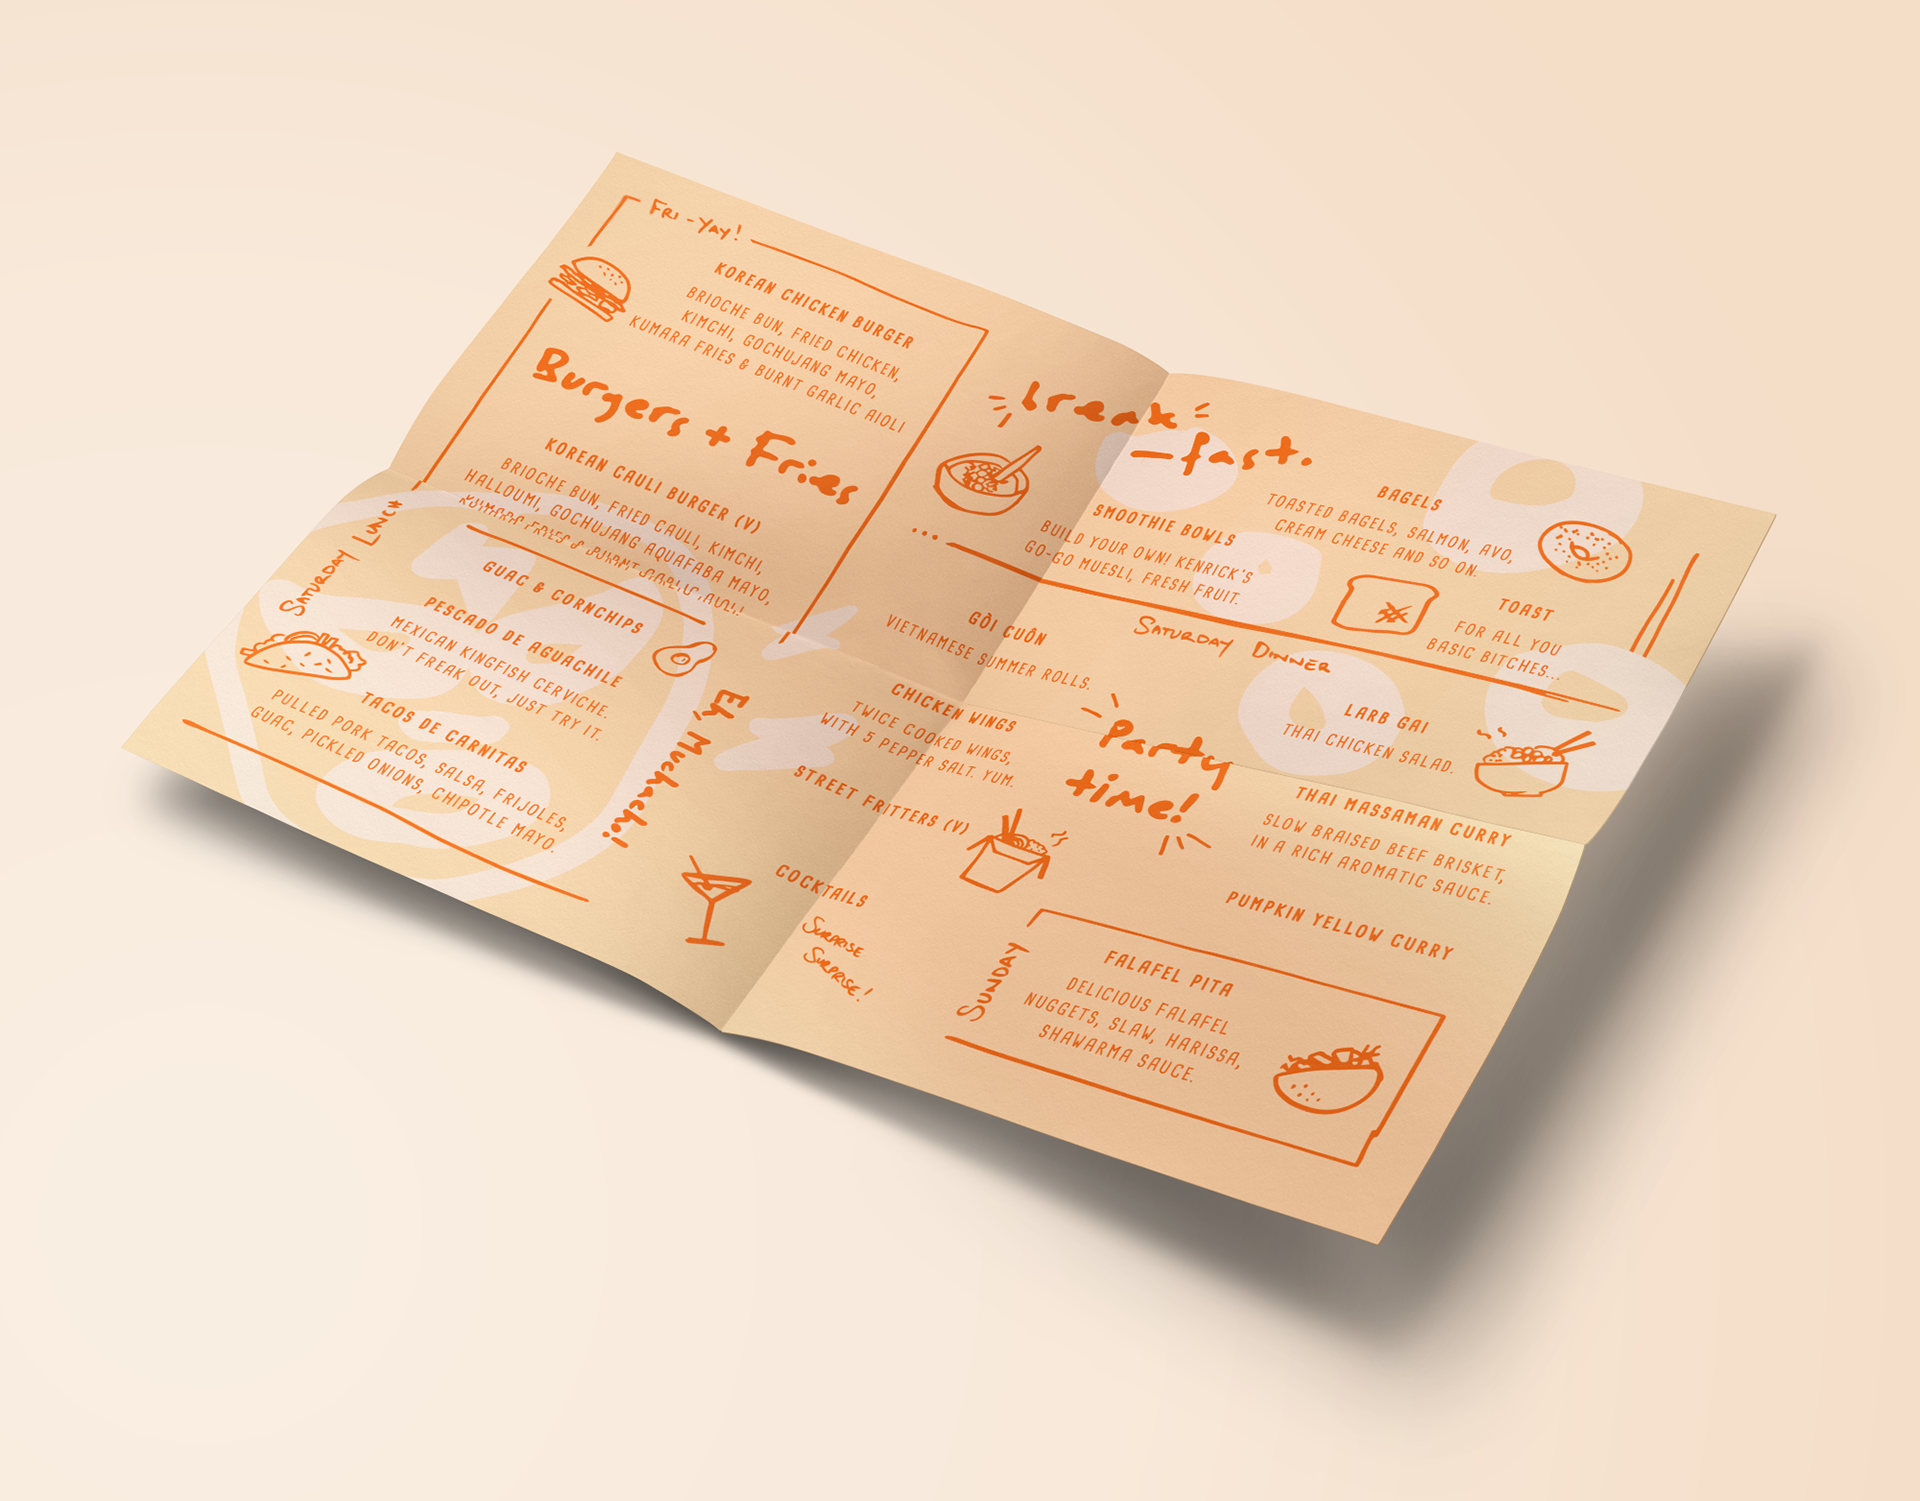 Fri-Yay!
KOREAN CHICKEN BURGER
BRIOCHE BUN, FRIED CHICKEN,
KIMCHI, GOCHUJANG MAYO,
KUMARA FRIES & BURNT GARLIC AIOLI
Burgers + Fries
KOREAN CAULI BURGER (V)
BRIOCHE BUN, FRIED CAULI, KIMCHI,
HALLOUMI, GOCHUJANG AQUAFABA MAYO,
KUMARA FRIES & BURNT GARLIC AIOLI
break
-fast.
SMOOTHIE BOWLS
BUILD YOUR OWN! KENRICK'S
GO-GO MUESLI, FRESH FRUIT.
BAGELS
TOASTED BAGELS, SALMON, AVO,
CREAM CHEESE AND SO ON.
TOAST
FOR ALL YOU
BASIC BITCHES...
Saturday Lunch
GUAC & CORNCHIPS
PESCADO DE AGUACHILE
MEXICAN KINGFISH CERVICHE.
DON'T FREAK OUT, JUST TRY IT.
TACOS DE CARNITAS
PULLED PORK TACOS, SALSA, FRIJOLES,
GUAC, PICKLED ONIONS, CHIPOTLE MAYO.
Eh, Muchachi!
Saturday Dinner
GỎI CUỐN
VIETNAMESE SUMMER ROLLS.
CHICKEN WINGS
TWICE COOKED WINGS,
WITH 5 PEPPER SALT. YUM.
STREET FRITTERS (V)
Party
time!
LARB GAI
THAI CHICKEN SALAD.
THAI MASSAMAN CURRY
SLOW BRAISED BEEF BRISKET,
IN A RICH AROMATIC SAUCE.
PUMPKIN YELLOW CURRY
COCKTAILS
Surprise
Surprise!
Sunday
FALAFEL PITA
DELICIOUS FALAFEL
NUGGETS, SLAW, HARISSA,
SHAWARMA SAUCE.